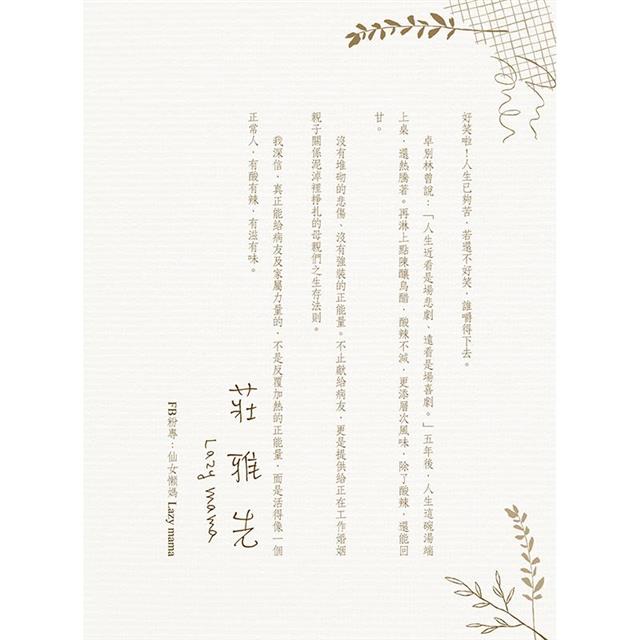 好笑啦！人生已夠苦，若還不好笑，誰嚼得下去。
卓別林曾說：「人生近看是場悲劇、遠看是場喜劇。」五年後，人生這碗湯端
上桌，還熱騰著。再淋上點陳釀烏醋，酸辣不減，更添層次風味，除了酸辣，還能回
甘。
沒有堆砌的悲傷、沒有強裝的正能量。不止獻給病友，更是提供給正在工作婚姻
親子關係泥淖裡掙扎的母親們之生存法則。
我深信，真正能給病友及家屬力量的，不是反覆加熱的正能量，而是活得像一個
正常人，有酸有辣，有滋有味。
莊雅先
Lazy mama
FB粉專：仙女懶媽 Lazy mama